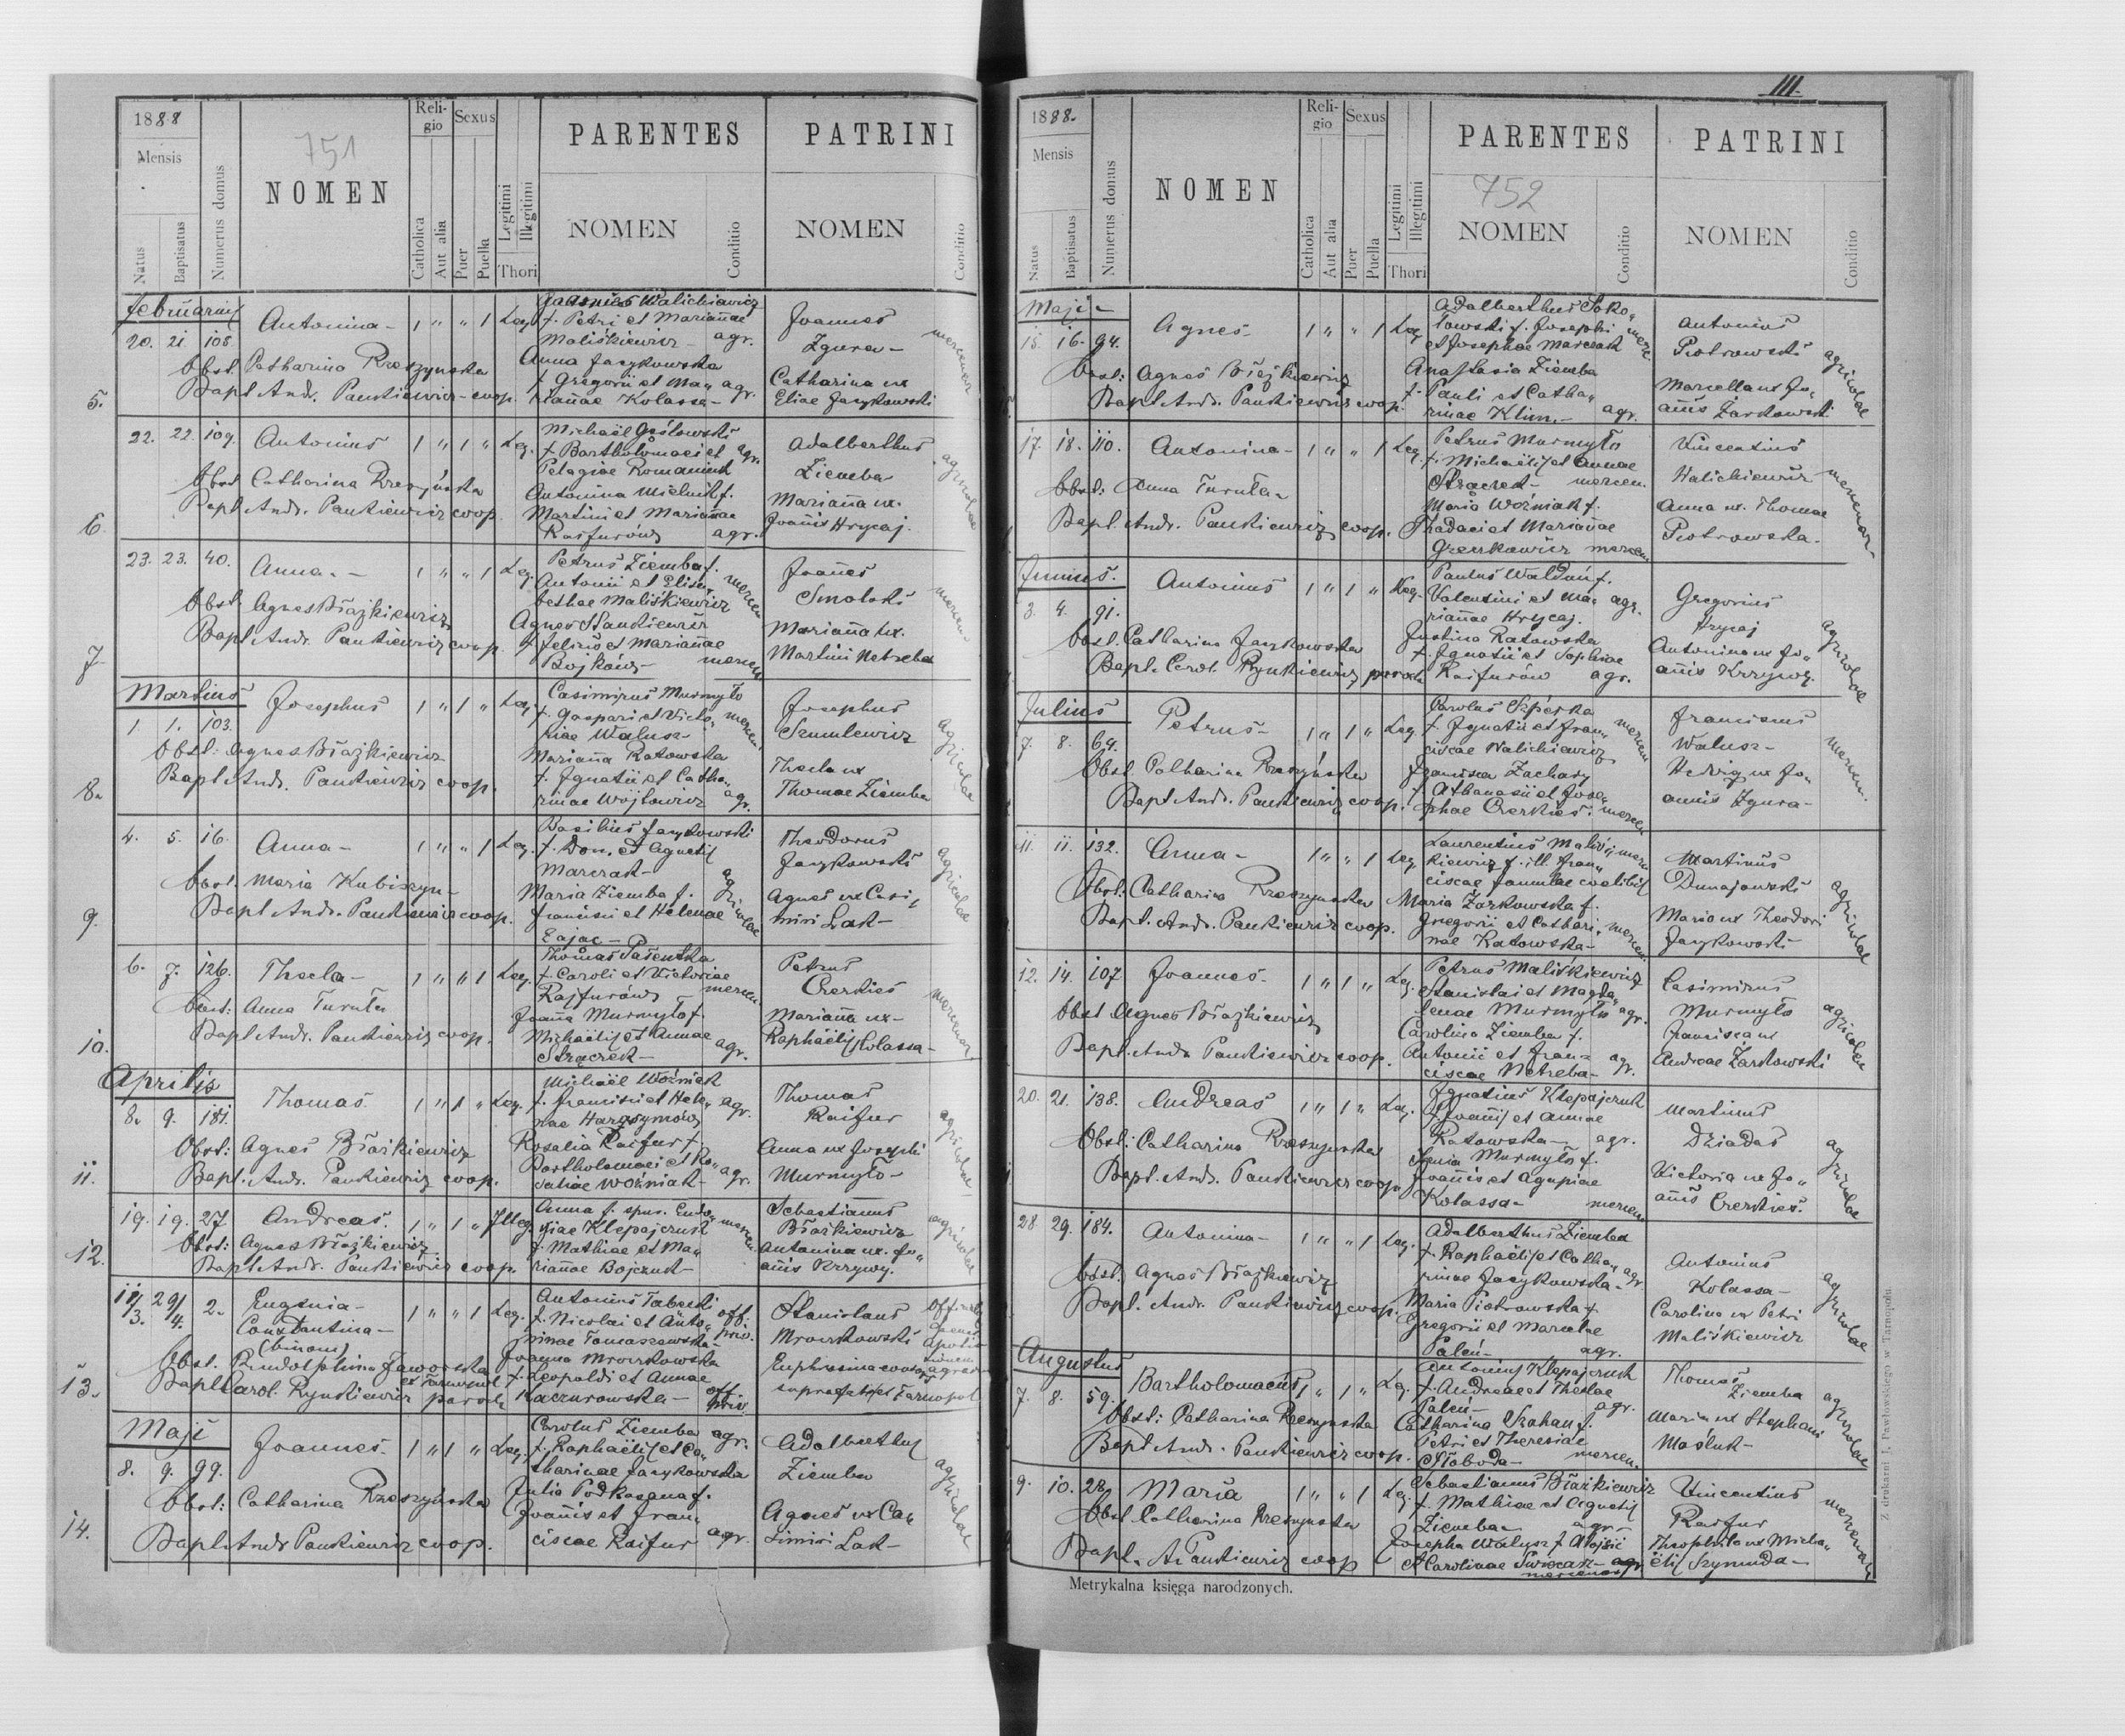 1888
751
Mensis
Natus
Baptisatus
Numerus domus
NOMEN
Religio
Catholica
Aut alia
Sexus
Puer
Puella
Legitimi
Illegitimi
Thori
PARENTES
NOMEN
Conditio
PATRINI
NOMEN
Conditio
Februarius
20. 21 108. Antonina - 1 " " 1 Leg.
Obst. Catharina Rzeszynska
Bapt. Andr. Pankiewicz - coop.
Joannes Walichiewicz
f. Petri et Mariannae
Maliśkiewicz - agr.
Anna Jasykowska
f. Gregorii et Ma„ agr.
riannae Kolassa -
Joannes
Zgura -
Catharina ux
Eliae Jasykowski
mercenar
5.
22. 22. 109. Antonius 1 " 1 " Leg.
Obst. Catharina Rzeszynska
Bapt. Andr. Pankiewicz coop.
Michaël
f. Bartholomaei et agr.
Pelagiae Romaniuk
Antonina Mielnik f.
Martini et Mariannae
Raifurów agr.
Adalberthus
Ziemba
Marianna ux.
Joannis Hrycaj.
agricolae
6.
23. 23. 40. Anna - 1 " " 1 Leg.
Obst. Agnes Błażkiewicz
Bapt. Andr. Pankiewicz coop.
Petrus Ziemba f.
Antonii et Elisa„ mercen
bethae Maliśkiewicz
Agnes Stankiewicz
f. Felicis et Mariannae
Bojków - mercen
Joannes
Smolski
Marianna ux.
Martini Netreba
mercen
7
Martius
1 1. 103. Josephus 1 " 1 " Leg.
Obst: Agnes Błażkiewicz
Bapt. Andr. Pankiewicz coop.
Casimirus Murmyło
f. Gaspari et Victo„ mercen
riae Walusz -
Marianna Ratowska
f. Ignatii et Catha„
rinae Wojtowicz agr.
Josephus
Szumlewicz
Thecla ux
Thomae Ziemba
agricolae
8.
4. 5. 16. Anna - 1 " " 1 Leg.
Obst. Maria Kubiszyn -
Bapt. Andr. Pankiewicz coop.
Basilius Jasykowski
f. Don. et Agnetis
Marczak -
Maria Ziemba f.
Francisci et Helenae
Zając -
agricolae
Theodorus
Jasykowski
Agnes ux Casi„
miri Lak -
agricolae
9.
6. 7. 126. Thecla - 1 " " 1 Leg.
Obst: Anna Turuta
Bapt. Andr. Pankiewicz coop.
Thomas Pasientka
f. Caroli et Victoriae
Rajfurów mercen.
Joanna Murmyło f.
Michaëlis et Annae
Strączek - agr.
Petrus
Czerkies
Marianna ux -
Raphaëlis Kolassa -
mercenar
10.
Aprilis
8. 9. 181. Thomas. 1 " 1 " Leg.
Obst: Agnes Błażkiewicz
Bapt. Andr. Pankiewicz coop.
Michaël Woźniak
f. Francisci et Hele„ agr.
nae Harasymów
Rosalia Raifur f.
Bartholomaei et Ro„ agr.
saliae Woźniak -
Thomas
Raifur
Anna ux Josephi
Murmyło -
agricolae
11.
19. 19. 27 Andreas. 1 " 1 " Illeg.
Obst: Agnes Błażkiewicz
Bapt. Andr. Pankiewicz coop.
Anna f. spur. Eudo„ mercen
xiae Klepajczuk
f. Mathiae et Ma„
riannae Bojczuk -
Sebastianus
Błażkiewicz
Antonina ux. Jo„
annis Krzywy.
agricolae
12.
11/3. 29/4. 2. Eugenia - 1 " " 1 Leg.
Constantina -
(binom)
Obst. Rudolphina Jaworska
ex Tarnopol
Bapt. Carol. Rynkiewicz paroch
Antonius Tabecki
f. Nicolai et Anto„ off. priv.
ninae Tomaszewska -
Joanna Mroczkowska
f. Leopoldi et Annae
Kaczurowska - off. priv.
Stanislaus
Mroczkowski
Euphrosina
supra ex Tarnopol
13.
Maji
8. 9. 99. Joannes. 1 " 1 " Leg.
Obst: Catharina Rzeszynska
Bapt. Andr Pankiewicz coop.
Carolus Ziemba agr.
f. Raphaëlis et Ca„
tharinae Jasykowska
Julia Podkasana f.
Joannis et Fran„
ciscae Raifur agr.
Adalberthus
Ziemba
Agnes ux Ca„
simiri Lak -
agricolae
14.
111.
1888.
Mensis
Natus
Baptisatus
Numerus domus
NOMEN
Religio
Catholica
Aut alia
Sexus
Puer
Puella
Legitimi
Illegitimi
Thori
PARENTES
752
NOMEN
Conditio
PATRINI
NOMEN
Conditio
Maji -
15. 16. 94. Agnes 1 " " 1 Leg
Obst: Agnes Błażkiewicz
Bapt. Andr. Pankiewicz coop.
Adalberthus Soko„
łowski f. Josephi merc.
et Josephae Marczak
Anastasia Ziemba
f. Pauli et Catha„
rinae Klim. - agr.
Antonius
Piotrowski
Marcella ux Jo„
annis Żarkowski
agricolae
17. 18. 110. Antonina - 1 " " 1 Leg
Obst: Anna Turuta -
Bapt. Andr. Pankiewicz coop.
Petrus Murmyło
f. Michaëlis et Annae
Strączek - mercen.
Maria Woźniak f.
Thadaei et Mariannae
Greszkowicz mercen
Vincentius
Walichiewicz
Anna ux. Thomae
Piotrowska.
mercenar -
Junius.
3. 4. 91. Antonius 1 " 1 " Leg.
Obst. Catharina Jasykowska
Bapt. Carol. Rynkiewicz paroch
Paulus Waldún f.
Valentini et Ma„ agr.
riannae Hrycaj.
Justina Ratowska
f. Ignatii et Sophiae
Raifurów agr.
Gregorius
Hrycaj
Antonina ux Jo„
annis Krzywy.
agricolae
Julius
7. 8. 64. Petrus - 1 " 1 " Leg
Obst. Catharina Rzeszynska
Bapt. Andr. Pankiewicz coop.
Carolus Szpérka
f. Ignatii et Fran„ mercen
ciscae Walichiewicz
Francisca Zachary
f. Athanasii et Jose„
phae Czerkies. mercen
Franciscus
Walusz -
Hedvig ux Jo„
annis Zgura -
mercen.
11. 11. 132. Anna - 1 " " 1 Leg
Obst. Catharina Rzeszynska
Bapt. Andr. Pankiewicz coop.
Laurentius Maliś„ mercen
kiewicz f. ill. Fran„
ciscae famulae coelibis
Maria Żarkowska f.
Gregorii et Cathari„ mercen.
nae Ratowska -
Martinus
Dunajowski
Maria ux Theodori
Jasykowski
agricolae
12. 14. 107 Joannes - 1 " 1 " Leg.
Obst Agnes Błażkiewicz
Bapt. Andr Pankiewicz coop.
Petrus Maliśkiewicz
Stanislai et Magda„
lenae Murmyło agr.
Carolina Ziemba f.
Antonii et Fran„ agr.
ciscae Netreba -
Casimirus
Murmyło
Francisca ux
Andreae Żarkowski
agricolae
20. 21. 138. Andreas 1 " 1 " Leg.
Obst: Catharina Rzeszynska
Bapt. Andr. Pankiewicz coop
Ignatius Klepajczuk
f. Joannis et Annae
Ratowska - agr.
Murmyło f.
Joannis et Agapiae
Kolassa - mercen
Martinus
Dziadas
Victoria ux Jo„
annis Czerkies.
agricolae
28 29. 184. Antonina - 1 " " 1 Leg.
Obst. Agnes Błażkiewicz
Bapt. Andr. Pankiewicz coop.
Adalberthus Ziemba
f. Raphaëlis et Catha„ agr
rinae Jasykowska -
Maria Piotrowska f.
Gregorii et Marcelae
Paleń - agr.
Antonius
Kolassa -
Carolina ux Petri
Maliśkiewicz
agricolae
Augustus
7. 8. 59. Bartholomaeus 1 " 1 " Leg.
Obst: Catharina Rzeszynska
Bapt. Andr. Pankiewicz coop.
Antonius Klepajczuk
f. Andreae et Theclae
Paleń - agr.
Catharina f.
Petri et Theresiae
Słoboda - mercen.
Thomas
Ziemba
Maria ux Stephani
Maśluk -
agricolae
9. 10. 28. Maria 1 " " 1 Leg.
Obst Catharina Rzeszynska
Bapt. A. Pankiewicz coop
Sebastianus Błażkiewicz
f. Mathiae et Agnetis
Ziemba - agr -
Josepha Walusz f Aloisii
et Carolinae
mercenar
Vincentius
Raifur
Theophila ux Micha„
ëlis Szymuda -
mercenar
Metrykalna księga narodzonych.
Z drukarni J. Pawłowskiego w Tarnopolu.